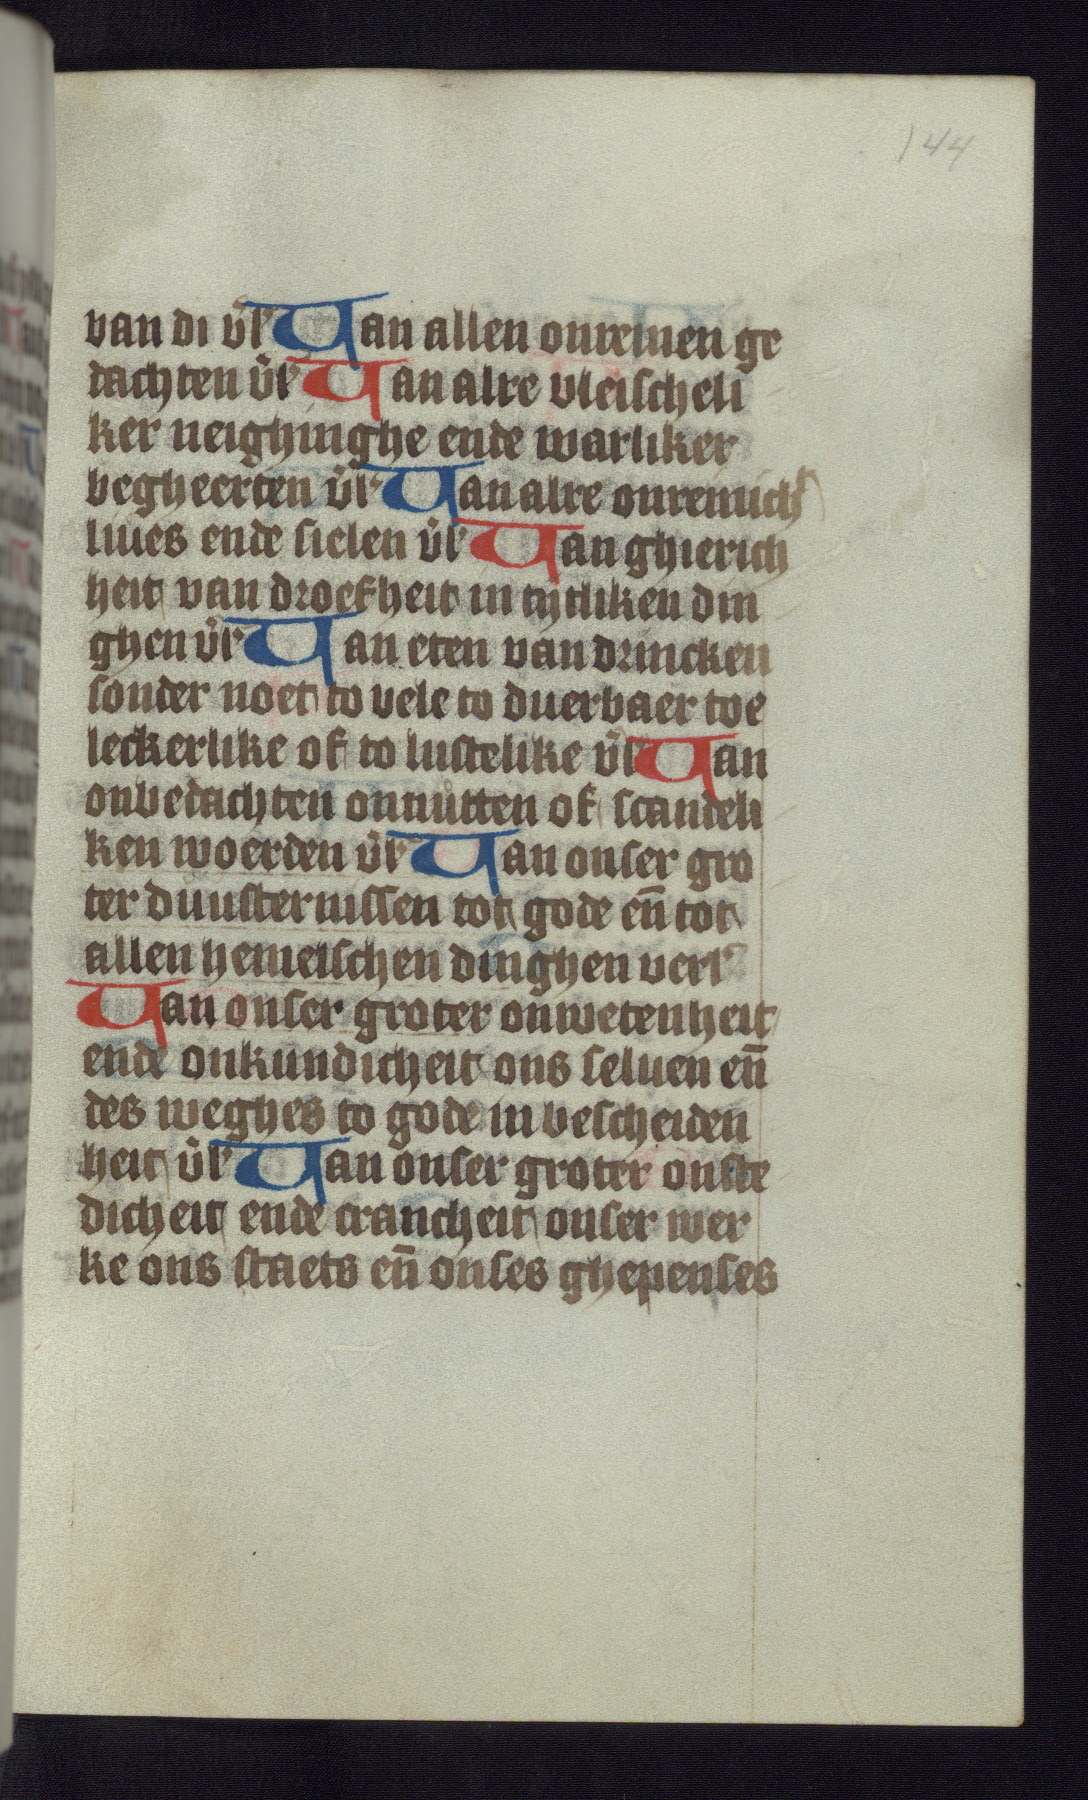 144
van di v̄l' Van allen onreinen ge
dachten v̄l' Van alre vleischeli
ker neighinghe ende warliker
begheerten v̄l' Van alre onreinich̄t
liues ende sielen v̄l' Van ghierich
heit van droefheit in tytliken din
ghen v̄l' Van eten van drincken
sonder noet to vele to duerbaer toe
leckerlike of to lustelike v̄l' Van
onbedachten onnutten of scandeli
ken woerden v̄l' Van onser gro
ter duusternissen tot gode en̄ tot
allen hemelschen dinghen verl'
Van onser groter onwetenheit
ende onkundicheit ons seluen en̄
des weghes to gode in bescheiden
heit v̄l' Van onser groter onste
dicheit ende crancheit onser wer
ke ons staets en̄ onses ghepenses